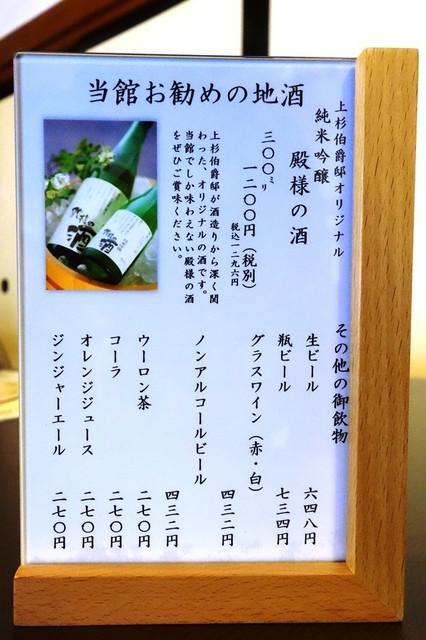 当館お勧めの地酒
上杉伯爵邸オリジナル
純米吟醸
殿様の酒
三〇〇ミリ
一二〇〇円（税別）
税込一二九六円
上杉伯爵邸が酒造りから深く関
わった、オリジナルの酒です。
当館でしか味わえない殿様の酒
をぜひご賞味ください。
その他の御飲物
生ビール 六四八円
瓶ビール 七三四円
グラスワイン（赤・白）
四三二円
ノンアルコールビール
四三二円
ウーロン茶 二七〇円
コーラ 二七〇円
オレンジジュース 二七〇円
ジンジャーエール 二七〇円